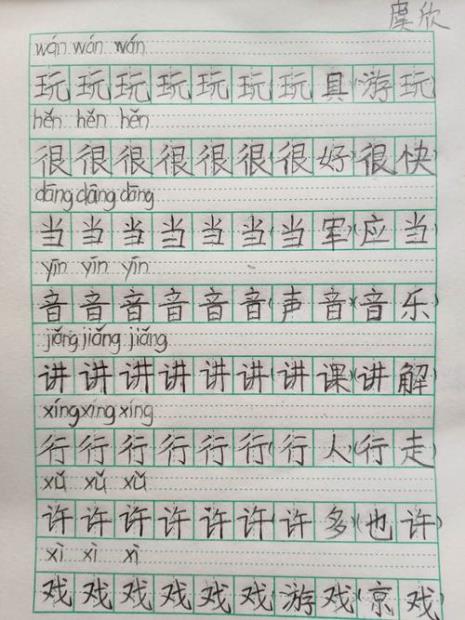 虞欣
wán wán wán
玩玩玩玩玩玩(玩具)(游玩)
hěn hěn hěn
很很很很很很(很好)(很快)
dāng dāng dāng
当当当当当当(当军)(应当)
yīn yīn yīn
音音音音音音(声音)(音乐)
jiǎng jiǎng jiǎng
讲讲讲讲讲讲(讲课)(讲解)
xíng xíng xíng
行行行行行行(行人)(行走)
xǔ xǔ xǔ
许许许许许许(许多)(也许)
xì xì xì
戏戏戏戏戏戏(游戏)(京戏)